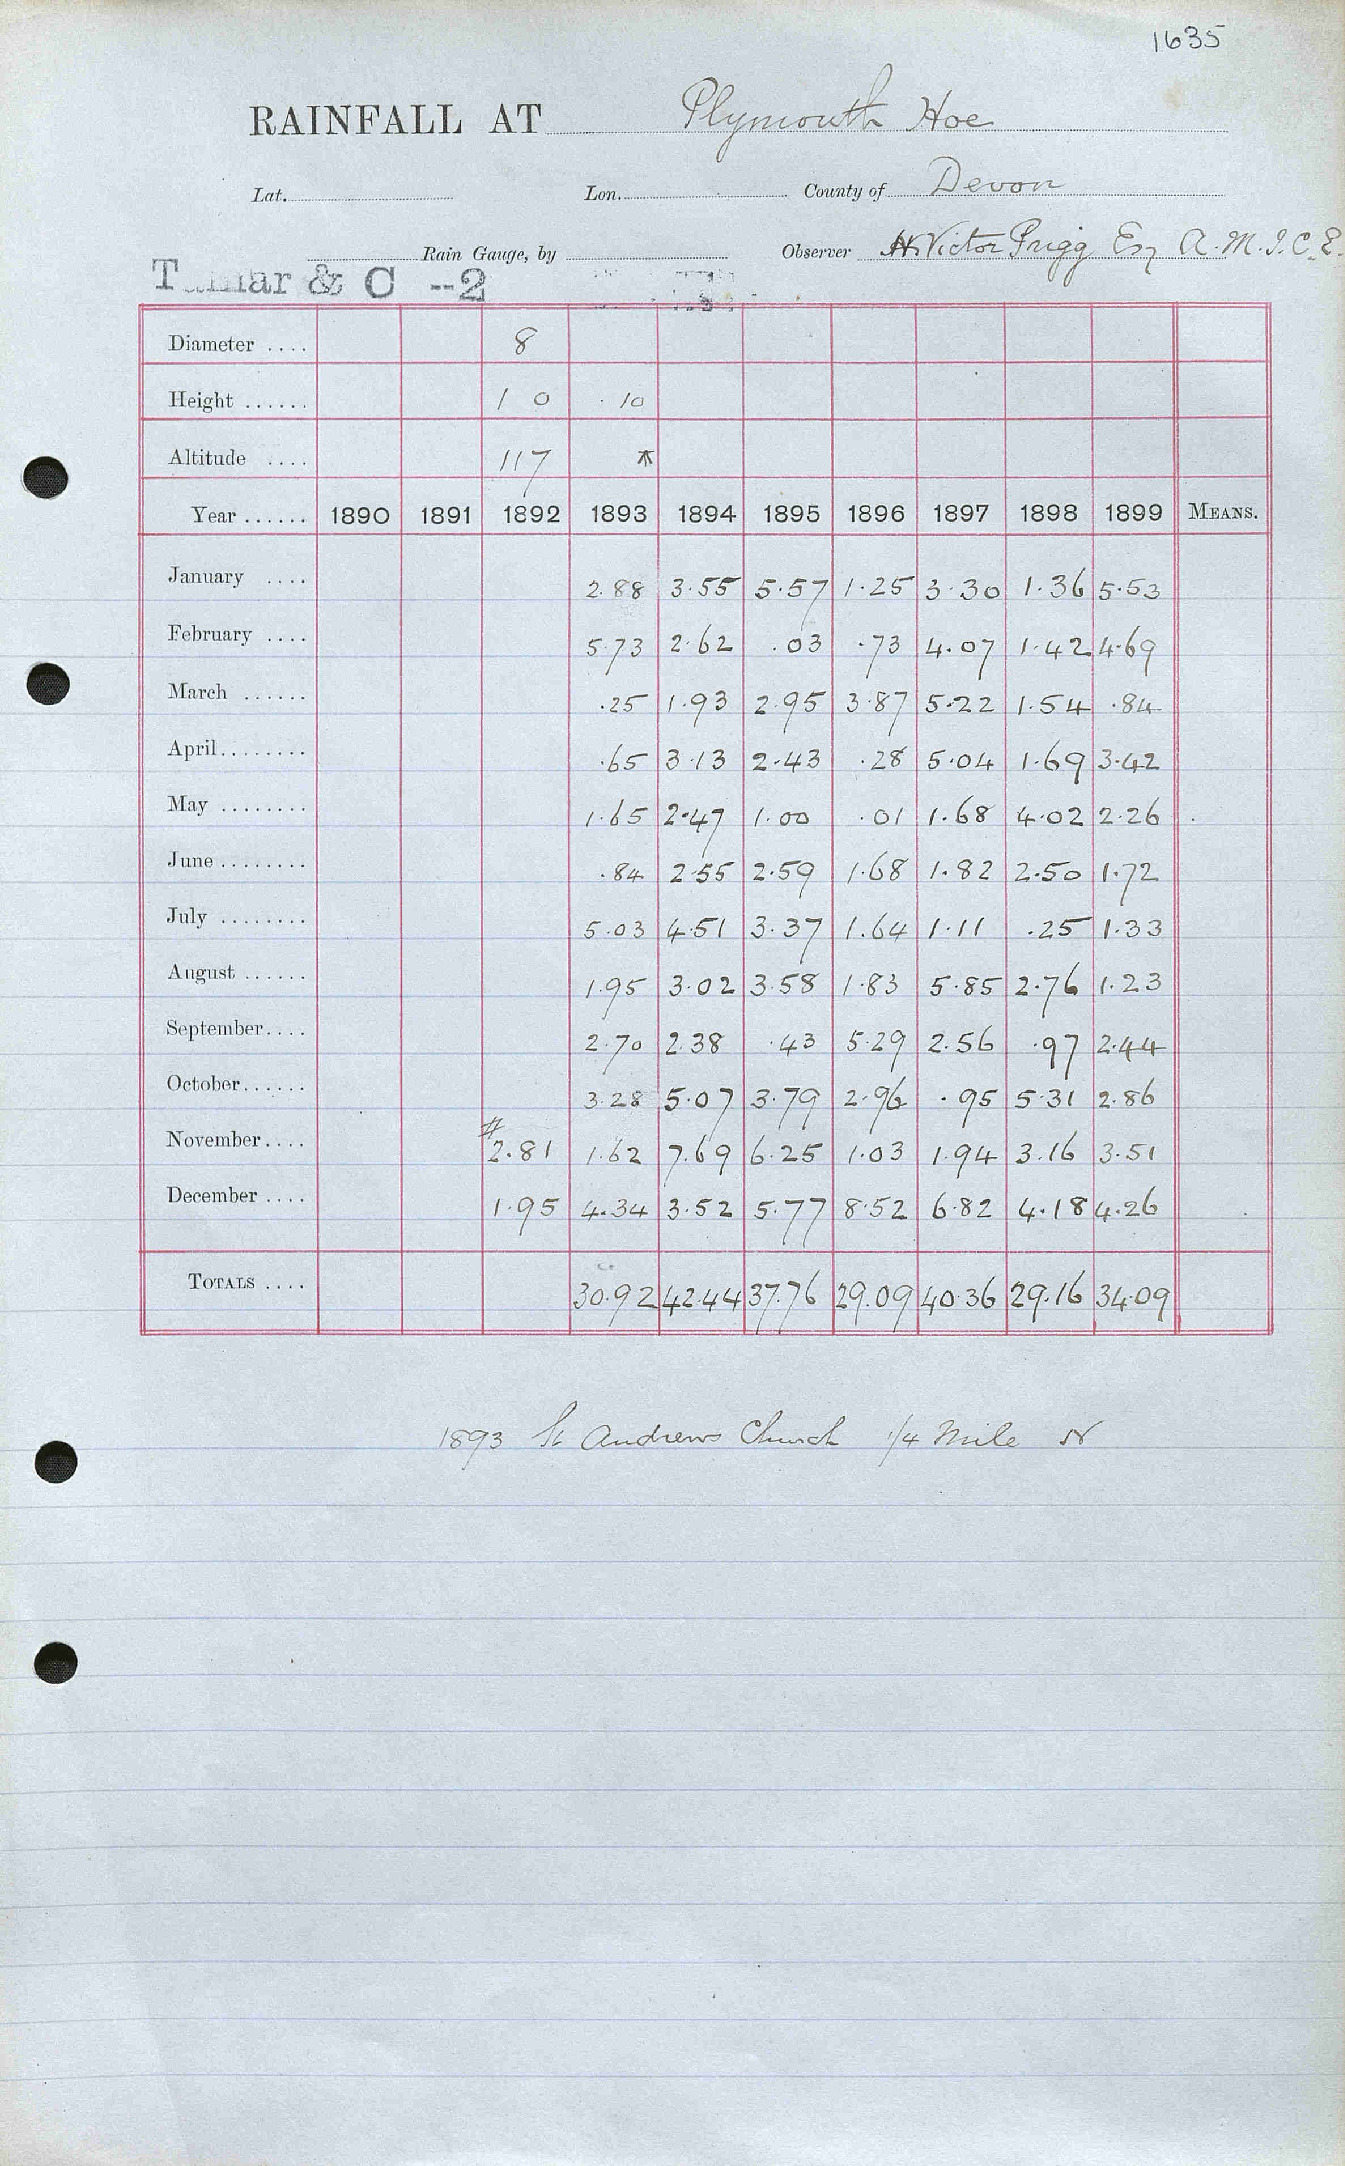 1635
RAINFALL AT Plymouth Hoe
Lat. Lon. County of Devon
Rain Gauge, by Observer H. Victor Prigg Esq A.M.I.C.E.
& C --2
Diameter .... 8
Height ...... 1 0 .10
Altitude .... 117
Year ...... 1890 1891 1892 1893 1894 1895 1896 1897 1898 1899 MEANS.
January .... 2.88 3.55 5.57 1.25 3.30 1.36 5.53
February .... 5.73 2.62 .03 .73 4.07 1.42 4.69
March ...... .25 1.93 2.95 3.87 5.22 1.54 .84
April........ .65 3.13 2.43 .28 5.04 1.69 3.42
May ........ 1.65 2.47 1.00 .01 1.68 4.02 2.26
June ........ .84 2.55 2.59 1.68 1.82 2.50 1.72
July ........ 5.03 4.51 3.37 1.64 1.11 .25 1.33
August ...... 1.95 3.02 3.58 1.83 5.85 2.76 1.23
September.... 2.70 2.38 .43 5.29 2.56 .97 2.44
October...... 3.28 5.07 3.79 2.96 .95 5.31 2.86
November.... #2.81 1.62 7.69 6.25 1.03 1.94 3.16 3.51
December .... 1.95 4.34 3.52 5.77 8.52 6.82 4.18 4.26
TOTALS .... 30.92 42.44 37.76 29.09 40.36 29.16 34.09
1893 St Andrews Church 1/4 Mile N